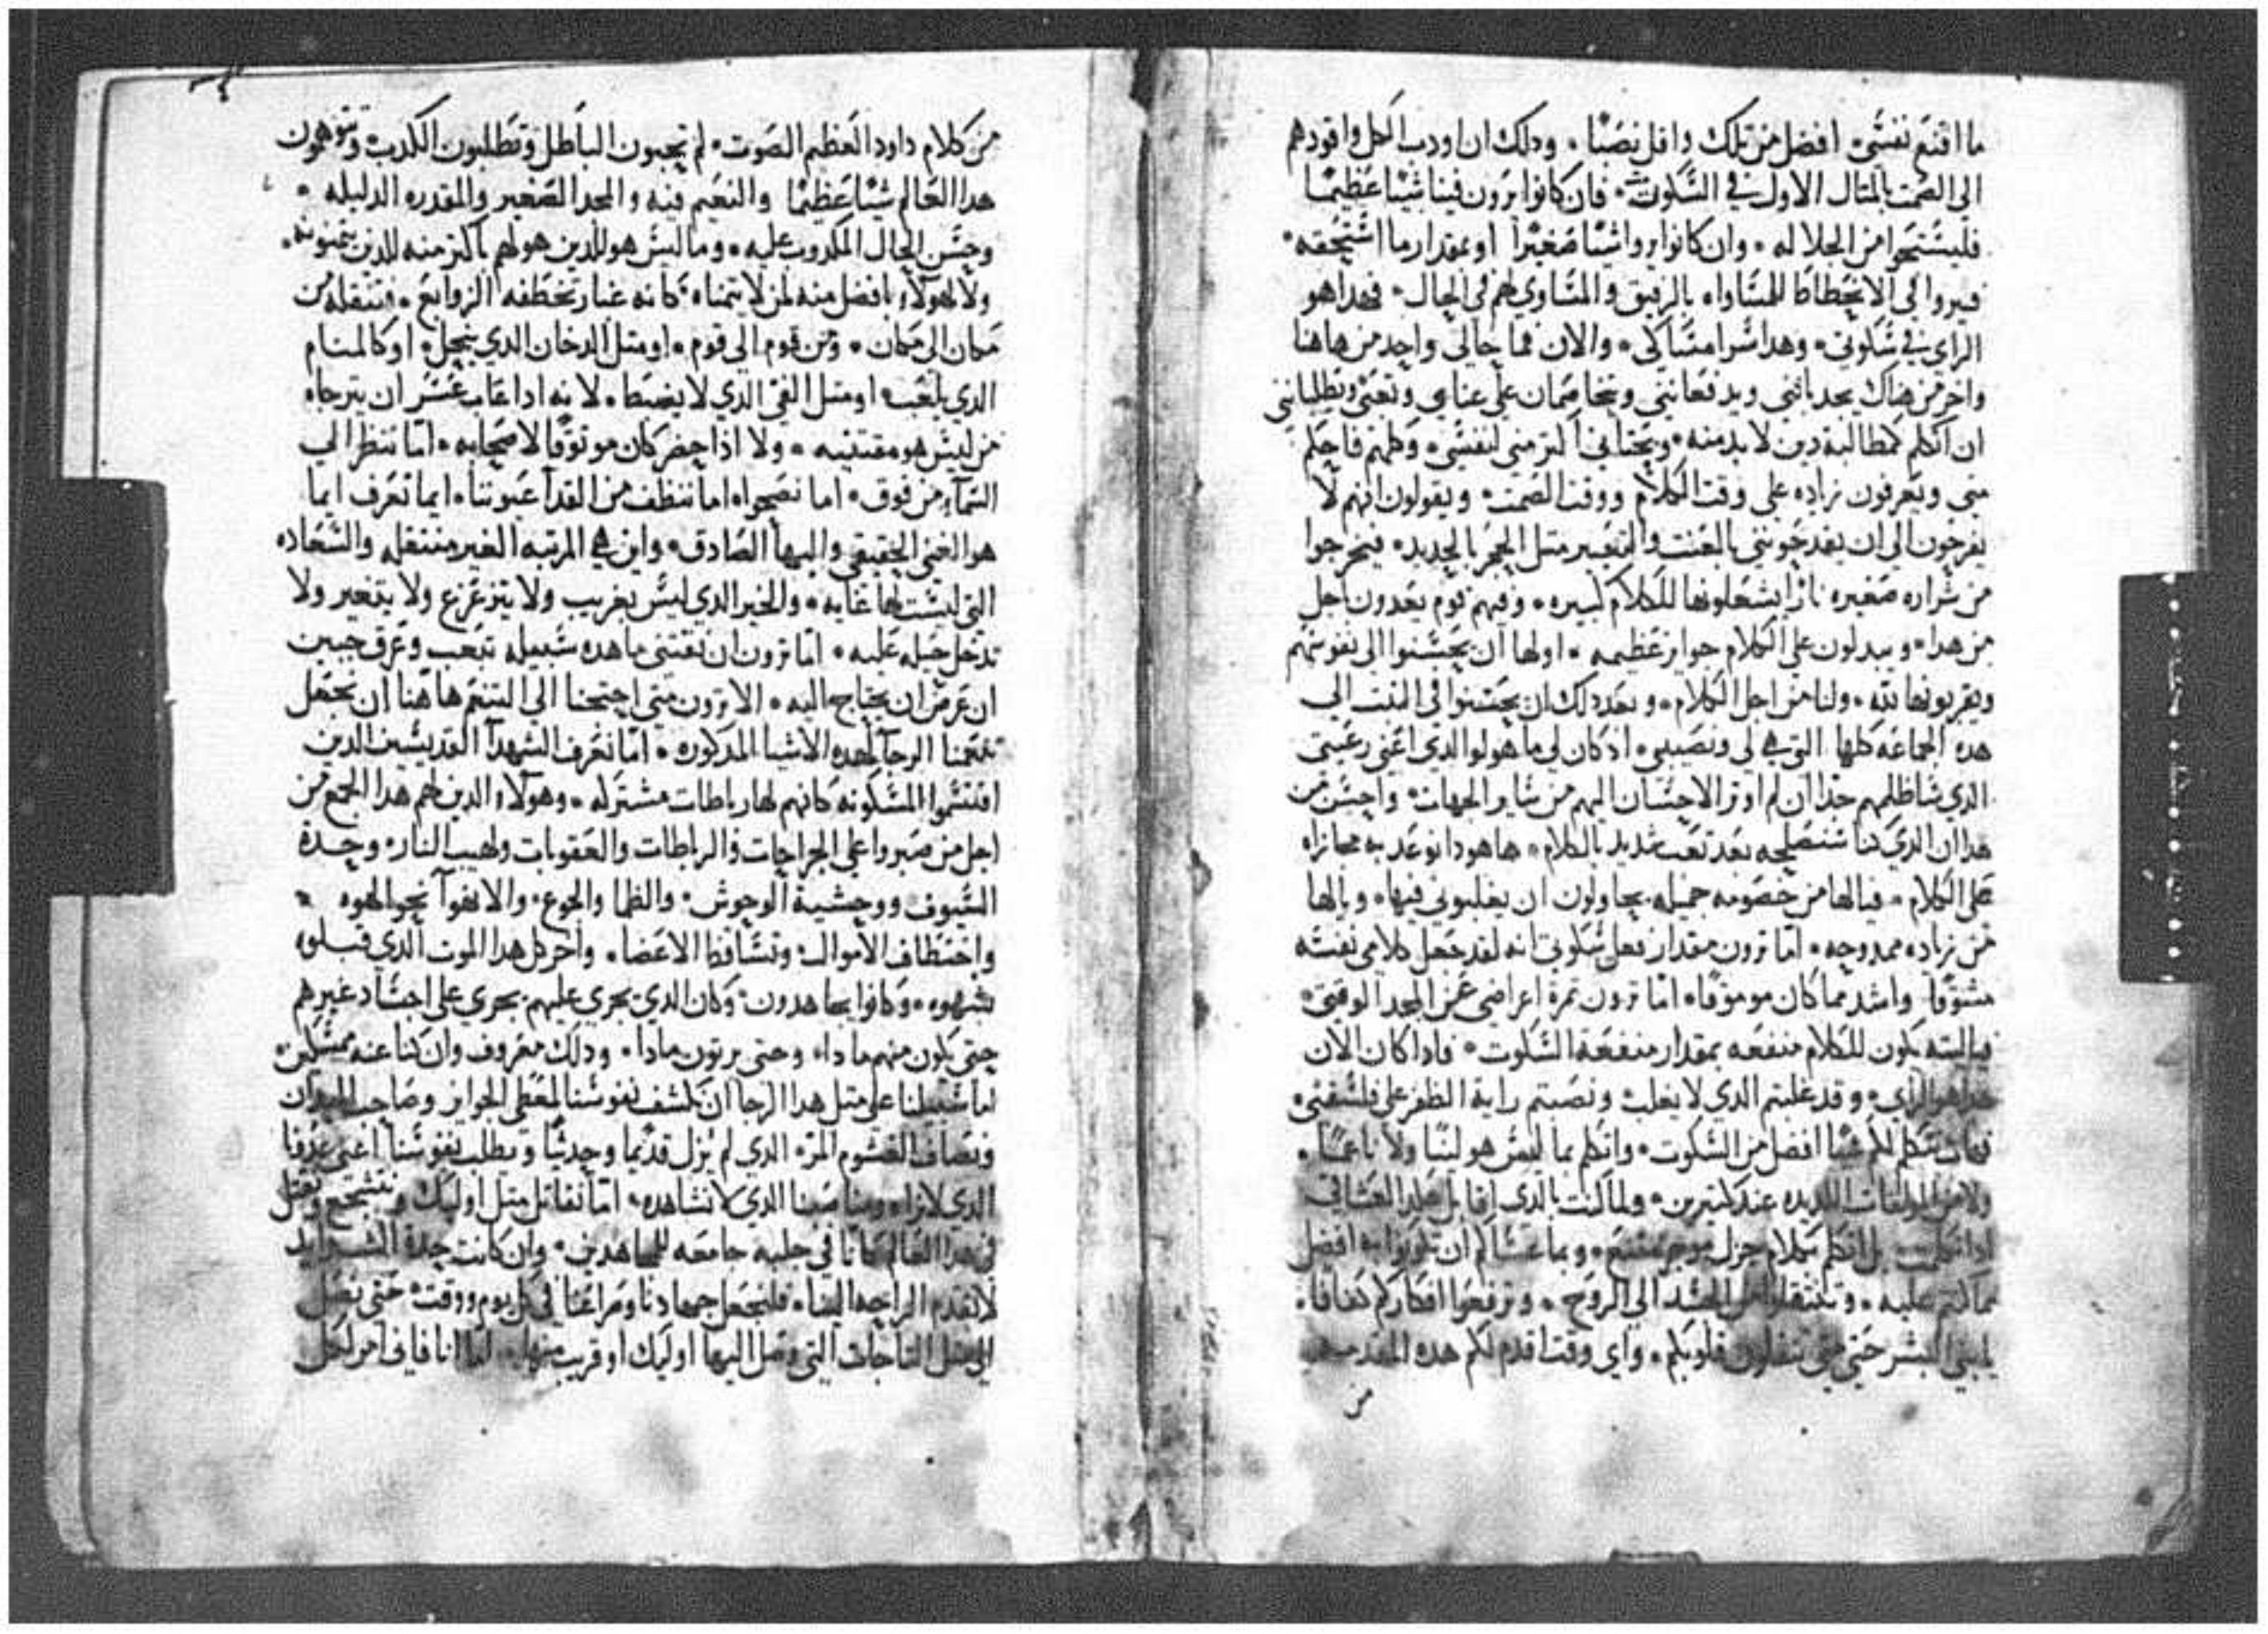 ما اقنع نفسي، افضل من تلك واقل نصبًا، ودلك ان اودب الكل واقودهم
الى الصمت بالمتال الاول في السكوت، فان كانوا يرون فينا شيئا عظيمًا
فليستحوا من الجلاله، وان كانوا يروا شيئًا صغيرًا او بمقدار ما استحقه،
فيروا لي الانحطاط للمساواه بالرفيق والمساوي لهم في الحال، فهدا هو
الراي في سكوتي، وهدا سر امساكي، والان فما حالي واحد من هاهنا
واخر من هناك يجدباني ويدفعاني ويخاصمان على عناي وتعبي ويطلباني
ان اتكلم كمطالبة دين لا بد منه، اكتر مني لنفسي، وكلهم فاحكم
مني ويعرفون زياده على وقت الكلام ووقت الصمت، ويقولون انهم لا
يفرحون الى ان يقدحوني بالعنت والتعيير متل الحجر بالحديد، فيخرجوا
من شراره صغيره نارًا يشعلونها للكلام كبيره، وفيهم قوم يعدون اجل
من هدا، ويبدلون على الكلام جوايز عظيمه، اولها ان يحسنوا الى نفوسهم
ويقربونها لله، ولنا من اجل الكلام، وبعد دلك ان يحسنوا في البنت الي
هده الجماعه كلها التي هي لي ونصيبي، اد كان لي ما هو لوالدي اعني رعيتي
الدي ساظلمهم جدًا ان لم اوتر الاحسان اليهم من ساير الجهات، واحسن من
هدا ان الدي كنا سنصلحه بعد تعب شديد بالكلام، هاهودا نوعد به مجازاه
على الكلام، فيا لها من خصومه جميله يحاولون ان يغلبوني فيها، ويا لها
من زياده ممدوحه، اما ترون مقدار فعل سكوتي انه لقد جعل كلامي نفسه
مشوقًا واشد مما كان موموقًا، اما ترون تمرة اعراضي عن المجد الوقتي،
فياليته يكون للكلام منفعه بمقدار منفعة السكوت، فادا كان الان
هدا هو الراي، وقد غلبتم الدي لا يغلب ونصبتم راية الظفر على فلسفتي،
نتكلم افضل من السكوت، واتكلم بما ليس هو لينًا ولا ناعمًا،
ولا من اللديده عند كتيرين، ولما كنت بالدي
ادا تكلمت بل اتكلم بكلام جزل موجز مقنع، وبما عساكم ان تكونوا به افضل
مما كنتم عليه، وتنتقلوا من الجسد الى الروح، وترفعوا افكاركم كفافا،
يابني البشر حتى متى تتقلون قلوبكم، واي وقت اقدم لكم هده المقدمه
من
من كلام داود العظيم الصوت، لم تحبون الباطل وتطلبون الكدب، وتتوهمون
هدا العالم شيئًا عظيمًا والنعيم فيه والمجد الصغير والمقدره الدليله،
وحسن الحال المكدوب عليه، وما ليس هو للدين هو لهم باكتر منه للدين يتمنونه،
ولا لهولاء بافضل منه لمن لا يتمناه، كانه غبار تخطفه الزوابع، وتنقله من
مكان الى مكان، ومن قوم الى قوم، او متل الدخان الدي ينحل، او كالمنام
الدي يلعب، او متل الفي الدي لا يضبط، لانه ادا غاب عسر ان يترجاه
من ليس هو مقتنيه، ولا اذا حضر كان موتوقًا لاصحابه، اما ننظر الي
السماء من فوق، اما نصحوا، اما ننظف من القدا عيوننا، ايما نعرف ايما
هو الغني الحقيقي والبها الصادق، واين هي المرتبه الغير منتقله والسعاده
التي ليست لها غايه، والخير الدي ليس بغريب ولا يتزعزع ولا يتغير ولا
تدخل حيله عليه، اما ترون ان نقتني ما هده سبيله بتعب وعرق جبين
ان عرض ان يحتاج اليه، الا ترون متى احتجنا الى التنعم هاهنا ان نجعل
تنعمنا الرجا لهده الاشيا المدكوره، اما نعرف الشهدا القديسين الدين
اقتسموا المسكونه كانهم لها رباطات مشتركه، وهولاء الدين لهم هدا الجمع من
اجل من صبروا على الجراحات والرباطات والعقوبات ولهيب النار، وحدة
السيوف ووحشية الوحوش، والظما والجوع، والانفوا نحو الهوه
واختطاف الاموال، وتساقط الاعضا، واخر كل هدا الموت الدي قبلوه
بشهوه، وكانوا يجاهدون، وكان الدي يجري عليهم يجري على اجساد غيرهم
حتى يكون منهم مادا، وحتى يرتون مادا، ودلك معروف وان كنا عنه ممسكين،
اما سبيلنا على متل هدا الرجا ان نكشف نفوسنا لمعطي الجوايز وصاحب الميدان
ونصاف الغشوم المر، الدي لم يزل قديما وحديثًا ويطلب نفوسنا اعني عدونا
الدي لا نراه ومناصبنا الدي لا نشاهده، اما نقاتل متل اوليك ونتشجع ونقتل
في هدا العالم كانا في حلبه جامعه للمجاهدين، وان كانت حدة الشدايد
لا تقدم الراحه الينا، فلنجعل جهادنا ومراغنا في كل يوم ووقت، حتى نصل
الى متل التاجات التي وصل اليها اوليك او قريب منها، اما انا فاني امر لكل